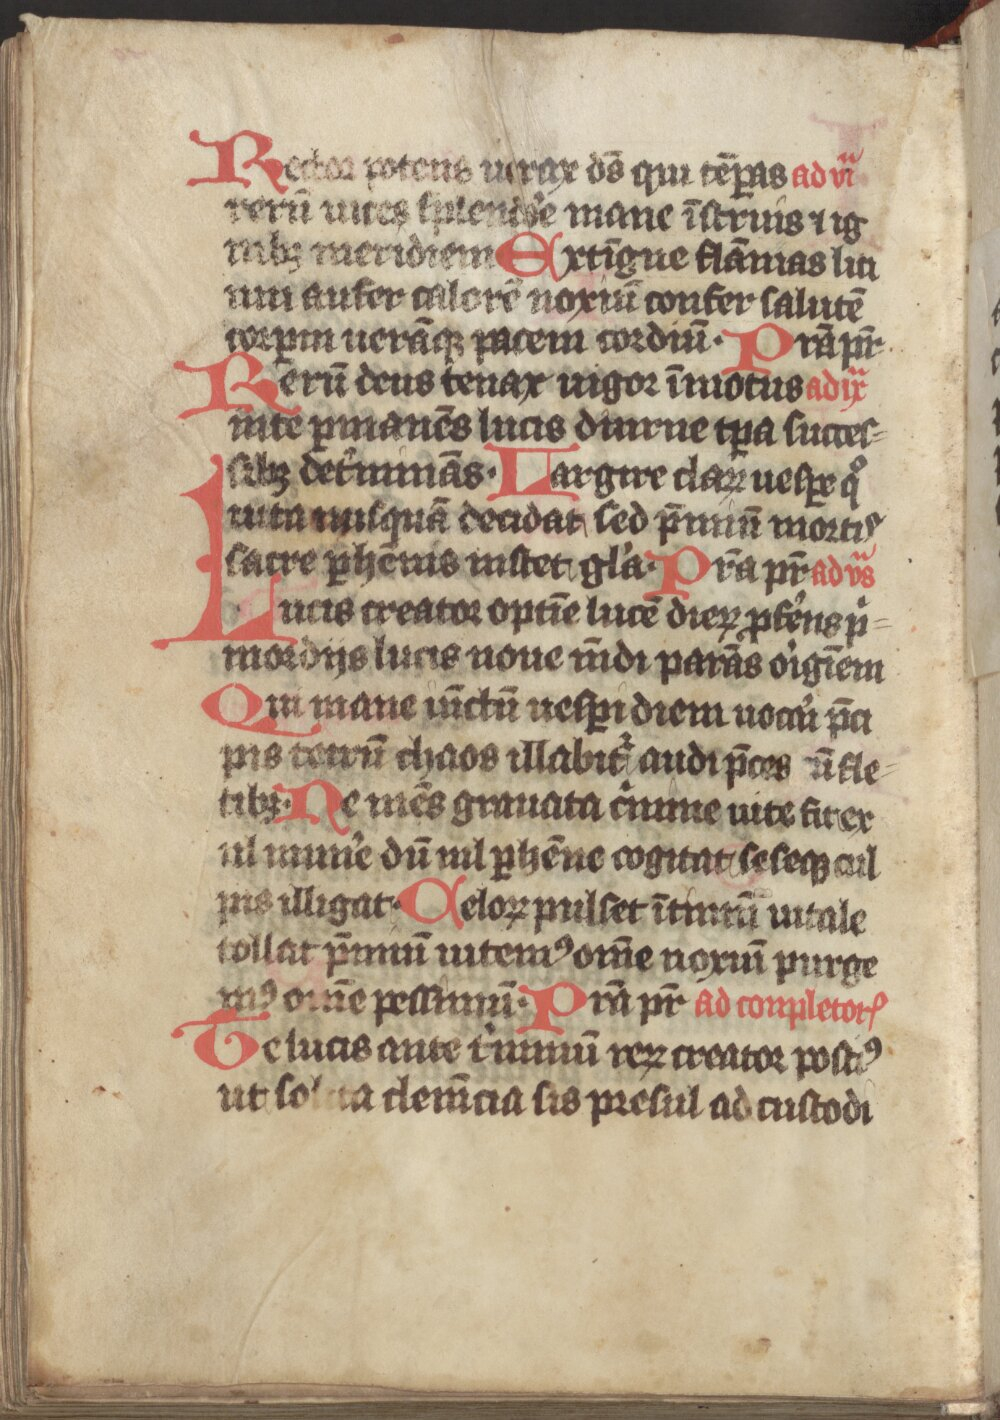 Rector potens uerax ds̄ qui tēꝑas ad vi͞
rerū uices splendore mane īstruis ⁊ ig
nibꝫ meridiem Extīgue flāmas liti
um aufer calorē noxiū confer salutē
corꝑm uerāqꝫ pacem cordiū· Prā pr̄
Rerū deus tenax uigor īmotus ad ix͞
īn te ꝑmanēs lucis diurne tp̄a succes-
sibꝫ det̉minās· Largire claꝝ uesꝑe qͦ
uita nusquā decidat sed p̄miū mortis
sacre ꝑhēnis instet gl̉a· Pr̄a pr̄ ad vs̄
Lucis creator optīe lucē dieꝝ ꝓfẻns pͥ-
mordijs lucis noue mūdi parās oỉgīem
Qui mane iūctū uesꝑi diem uocaỉ p̄ci
pis tetrū chaos illabit᷑ audi p̄ces cū fle-
tibꝫ· Ne mēs grauata cͥmine uite sit ex
ul munẻ dū nil ꝑhēne cogitat seseqꝫ cul
pis illigat· Celoꝝ pulset ītimū uitale
tollat p̄miū uitemꝰ om̄e noxiū purge
mꝰ om̄e pessimū· Prā pr̄ ad conpletor̄
Te lucis ante tͥminū reꝝ creator poscimꝰ
ut solita clem̄cia sis presul ad custodi